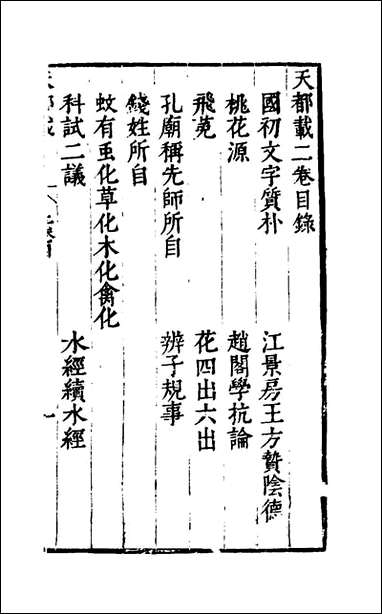 天都載二卷目錄
國初文字質朴 江景房王方贄陰德
桃花源 趙閣學抗論
飛菟 花四出六出
孔廟稱先師所自 辨子規事
錢姓所自
蚊有虫化草化木化禽化
科試二議 水經續水經
天都載